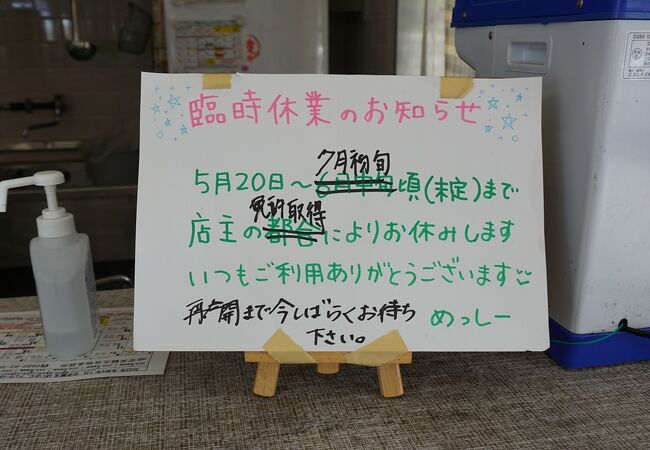 臨時休業のお知らせ
7月初旬
5月20日～6月中旬頃(未定)まで
免許取得
店主の都合によりお休みします
いつもご利用ありがとうございます
再開まで今しばらくお待ち
下さい。
めっしー